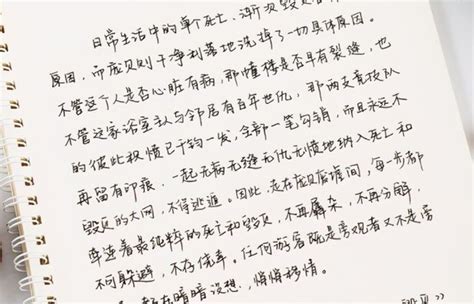 日常生活中的单个死亡、渐次毁
原因，而虚贝则干净利落地洗掉了一切具体原因。
不管这个人是否心脏有病，那幢楼是否早有裂缝，也
不管这家浴室主人与邻居有百年世仇，那两支竞技队
的彼此积愤已千钧一发，全部一笔勾销，而且永远不
再留有印痕，一起无病无缝无仇无愤地纳入死亡和
毁灭的大网，不得逃遁。因此，走在虚贝废墟间，每一步都
牵连着最纯粹的死亡和毁灭，不再羼杂，不再分解，
不可躲避，不存侥幸。任何游客既是旁观者又不是旁
都在暗暗设想，悄悄移情。